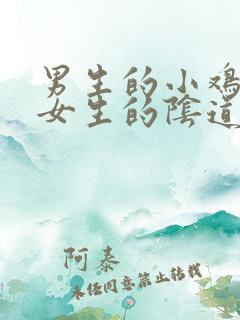 男生的小鸡
女生的陰道
阿泰
未经同意禁止转载